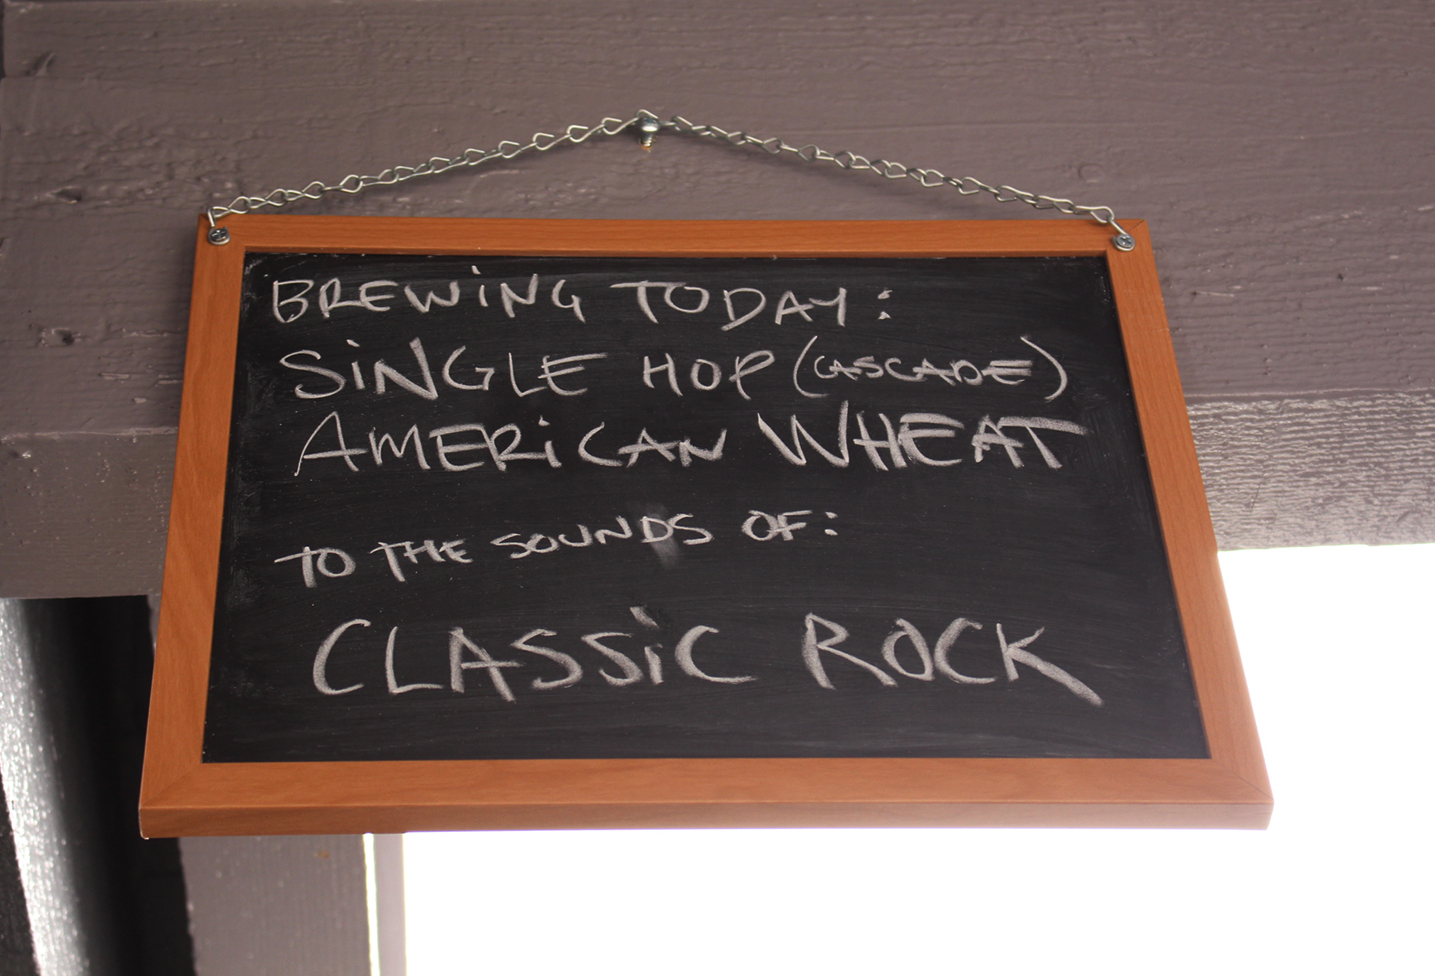 BREWiNG TODAY:
SiNGLE HOP (CASCADE)
AMERiCAN WHEAT
TO THE SOUNDS OF:
CLASSiC ROCK